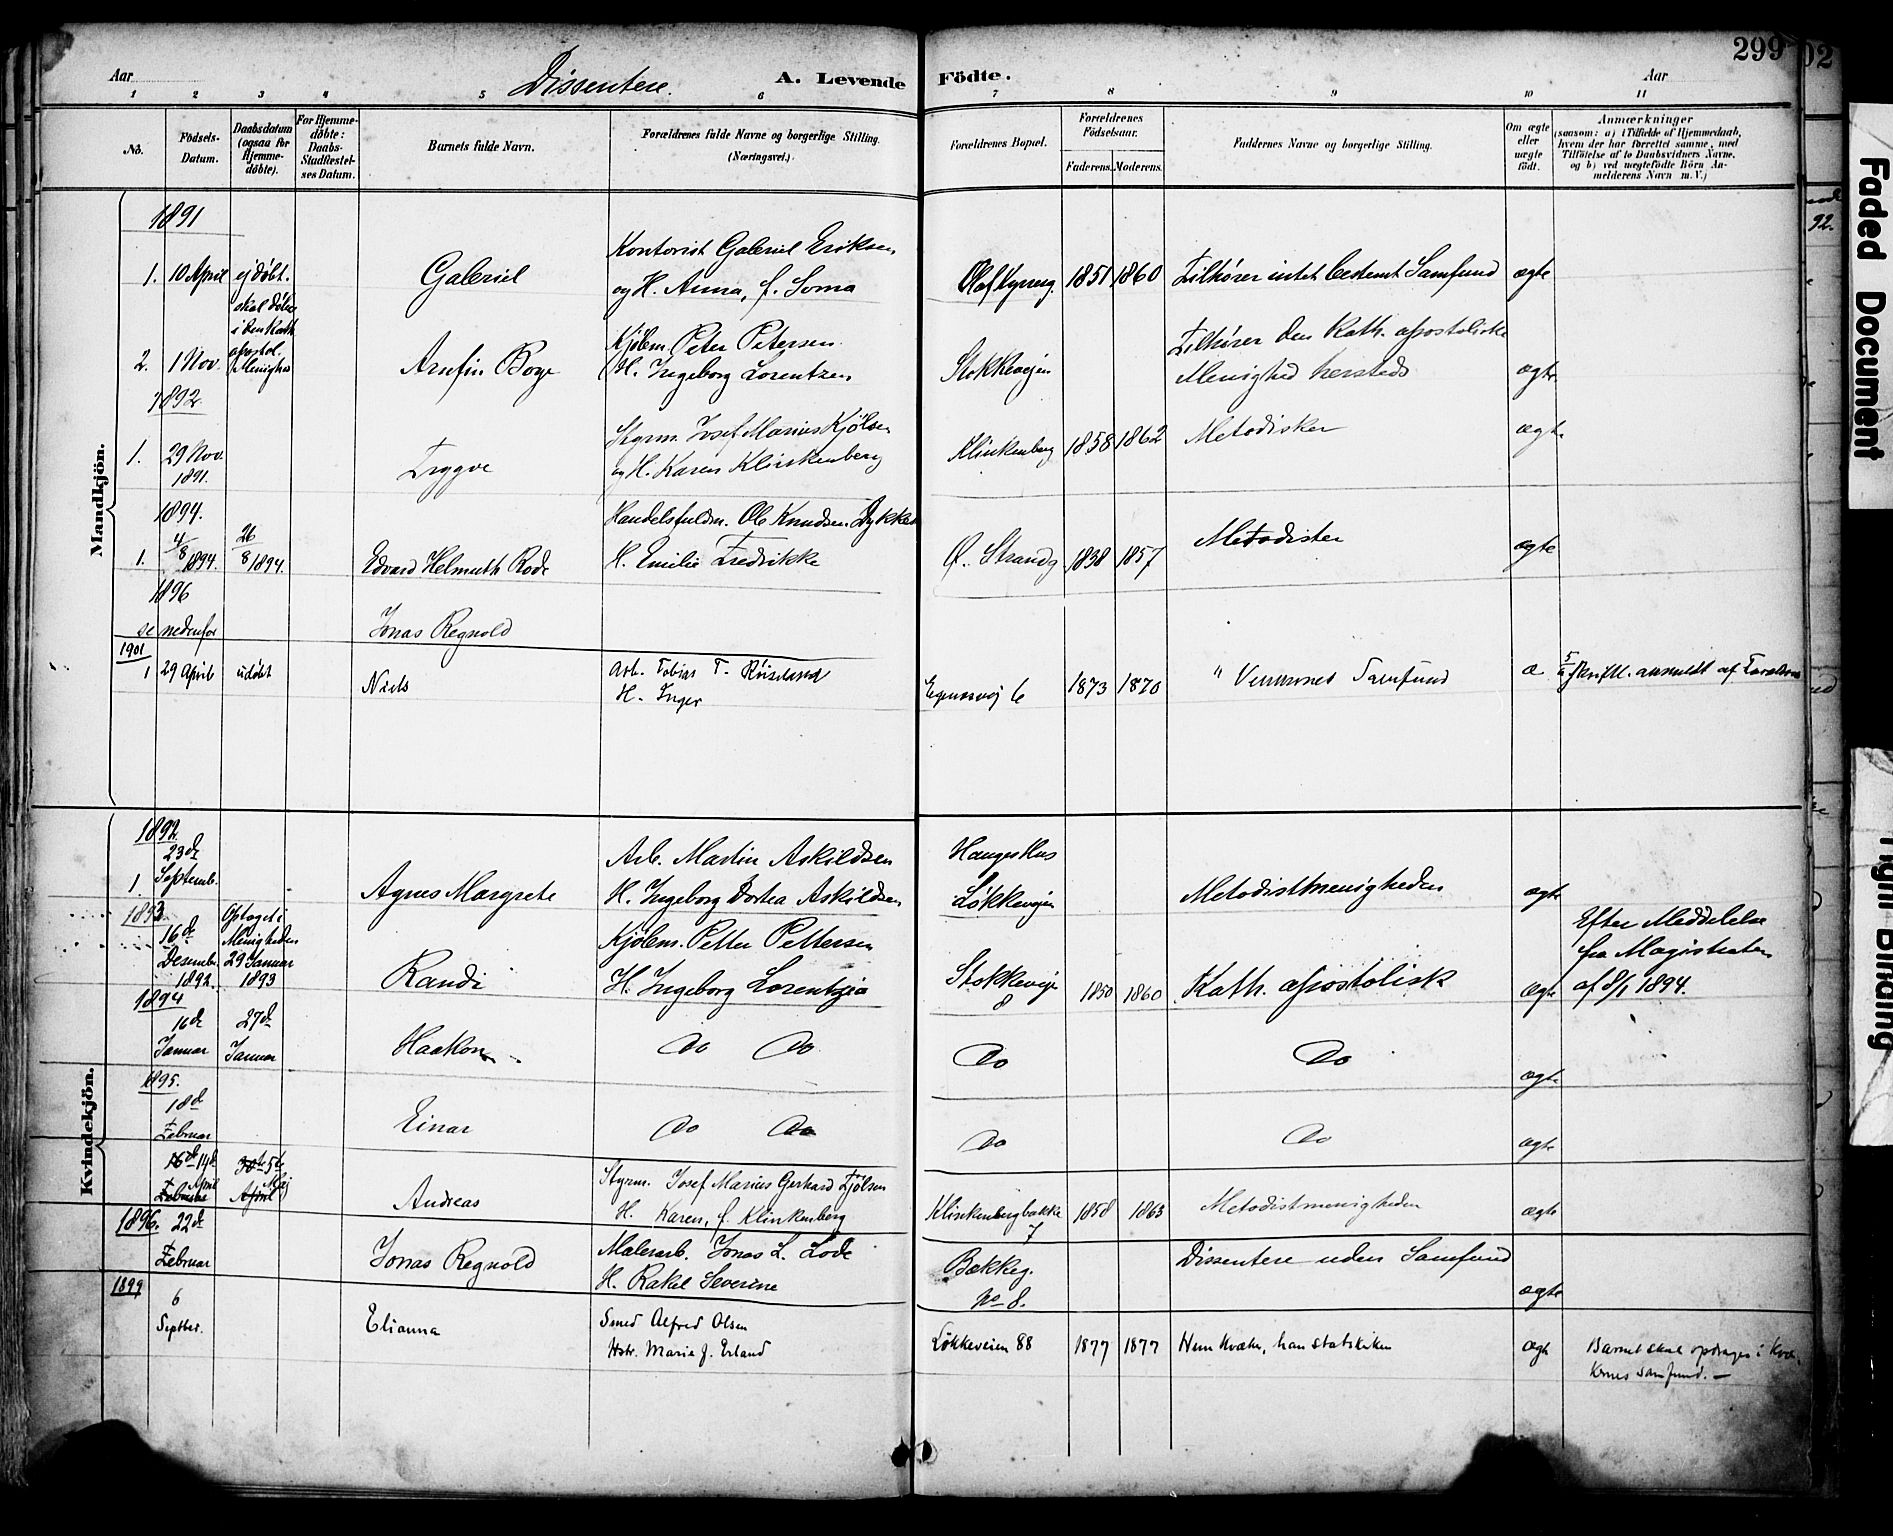 299
Aar
Dissentere.
A. Levende Födte.
Aar
1 2 3 4 5 6 7 8 9 10 11
No.
Födsels-Datum.
Daabsdatum (ogsaa for Hjemme-döbte).
For Hjemme-döbte: Daabs-Stadfæstel-ses Datum.
Barnets fulde Navn.
Forældrenes fulde Navne og borgerlige Stilling. (Næringsvei.)
Forældrenes Bopæl.
Forældrenes Födselsaar.
Faderens. Moderens.
Faddernes Navne og borgerlige Stilling.
Om ægte eller uægte født.
Anmærkninger
(saasom: a) i Tilfælde af Hjemmedaab, hvem der har forrettet samme, med Tilföielse af to Daabsvidners Navne, og b) ved uægtefödte Börn Anmelderens Navn m. V.)
Mandkjön.
1891
Kontorist Gabriel Eriksen
1. 10 April ej døbt. Gabriel og H. Anna, f. Soma 1851 1860 Tilhører intet bestemt Samfund ægte
skal døbes
i den kath.
apostol.
Menighed
Kjølem. Peter Petersen
2. 1 Nov. H. Ingeborg Lorentzen Stokkeveien ægte
Tilhører den kath. apostoliske
Menighed hersteds
1892
Styrm. Josef Marius Kjølsen
1. 29 Nov. 1891. Tryggve og H. Karen Klinkenberg Klinkenberg 1858 1862 Metodisker ægte
1894.
Handelsfuldm. Ole Knudsen
1. 4/8 1894. 26/8 1894. Edvard Helmuth Rode H. Emilie Fredrikke Ø. Strandg 1838 1857 Metodister ægte
1896
se nedenfor Jonas Regnold
1901
1 29 April udøbt Niels Arb. Tobias T.
H. Inger
6 1873 1870 Samfund æ
Kvindekjön.
1892.
1. 23de Septemb. Agnes Margrete Arb. Martin Askildsen
H. Ingeborg Dortea Askildsen
Hauges Hus
Løkkeveien
Metodistmenigheden ægte
1893
16de Desemb. 1892. Optaget i Menigheden 29 Januar 1893 Randi Kjølem. Petter Pettersen
H. Ingeborg Lorentzia
Stokkeveie 8 1850 1860 Kath. apostolisk ægte
Efter Meddelelse
fra Magistraten
af 8/1 1894.
1894
16de Januar 27de Januar Haakon Do Do Do Do ægte
1895.
18d Februar Einar Do Do Do Do ægte
16de 14de Februar April 30te 5te April Maj Andreas Styrm. Josef Marius Gerhard Fjølsen
H. Karen, f. Klinkenberg
Klinkenbergbakke 7 1858 1863 Metodistmenigheden ægte
1896. 22de Februar Jonas Regnold Malerarb. Jonas L. Lode
H. Rakel Severine
Bækkeg. No 8. Dissentere uden Samfund ægte
1899
6 Septber. Elianna Smed Alfred Olsen
Hstr. Marie f. Erland
Løkkeveien 88 1877 1877 Hun kvæker, han statskirken ægte
Barnet skal opdrages i Kvæ-
kernes samfund. –
Faded Document
Tight Binding